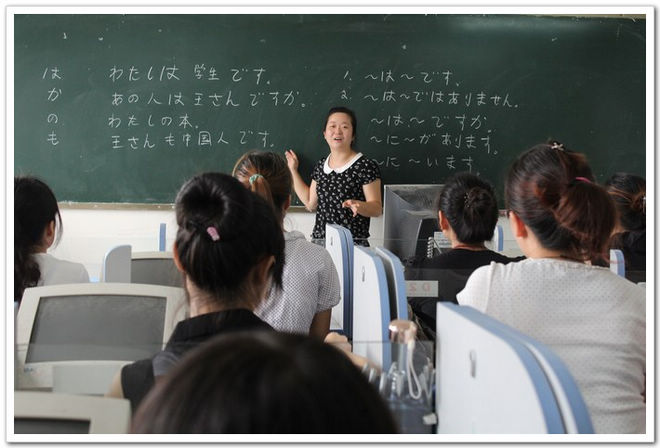 は わたしは 学生 です。
か あの人は王さんですか。
の わたしの本。
も 王さんも中国人です。
1. ～は～です。
2. ～は～ではありません。
～は～ですか。
～に～があります。
～に～います。